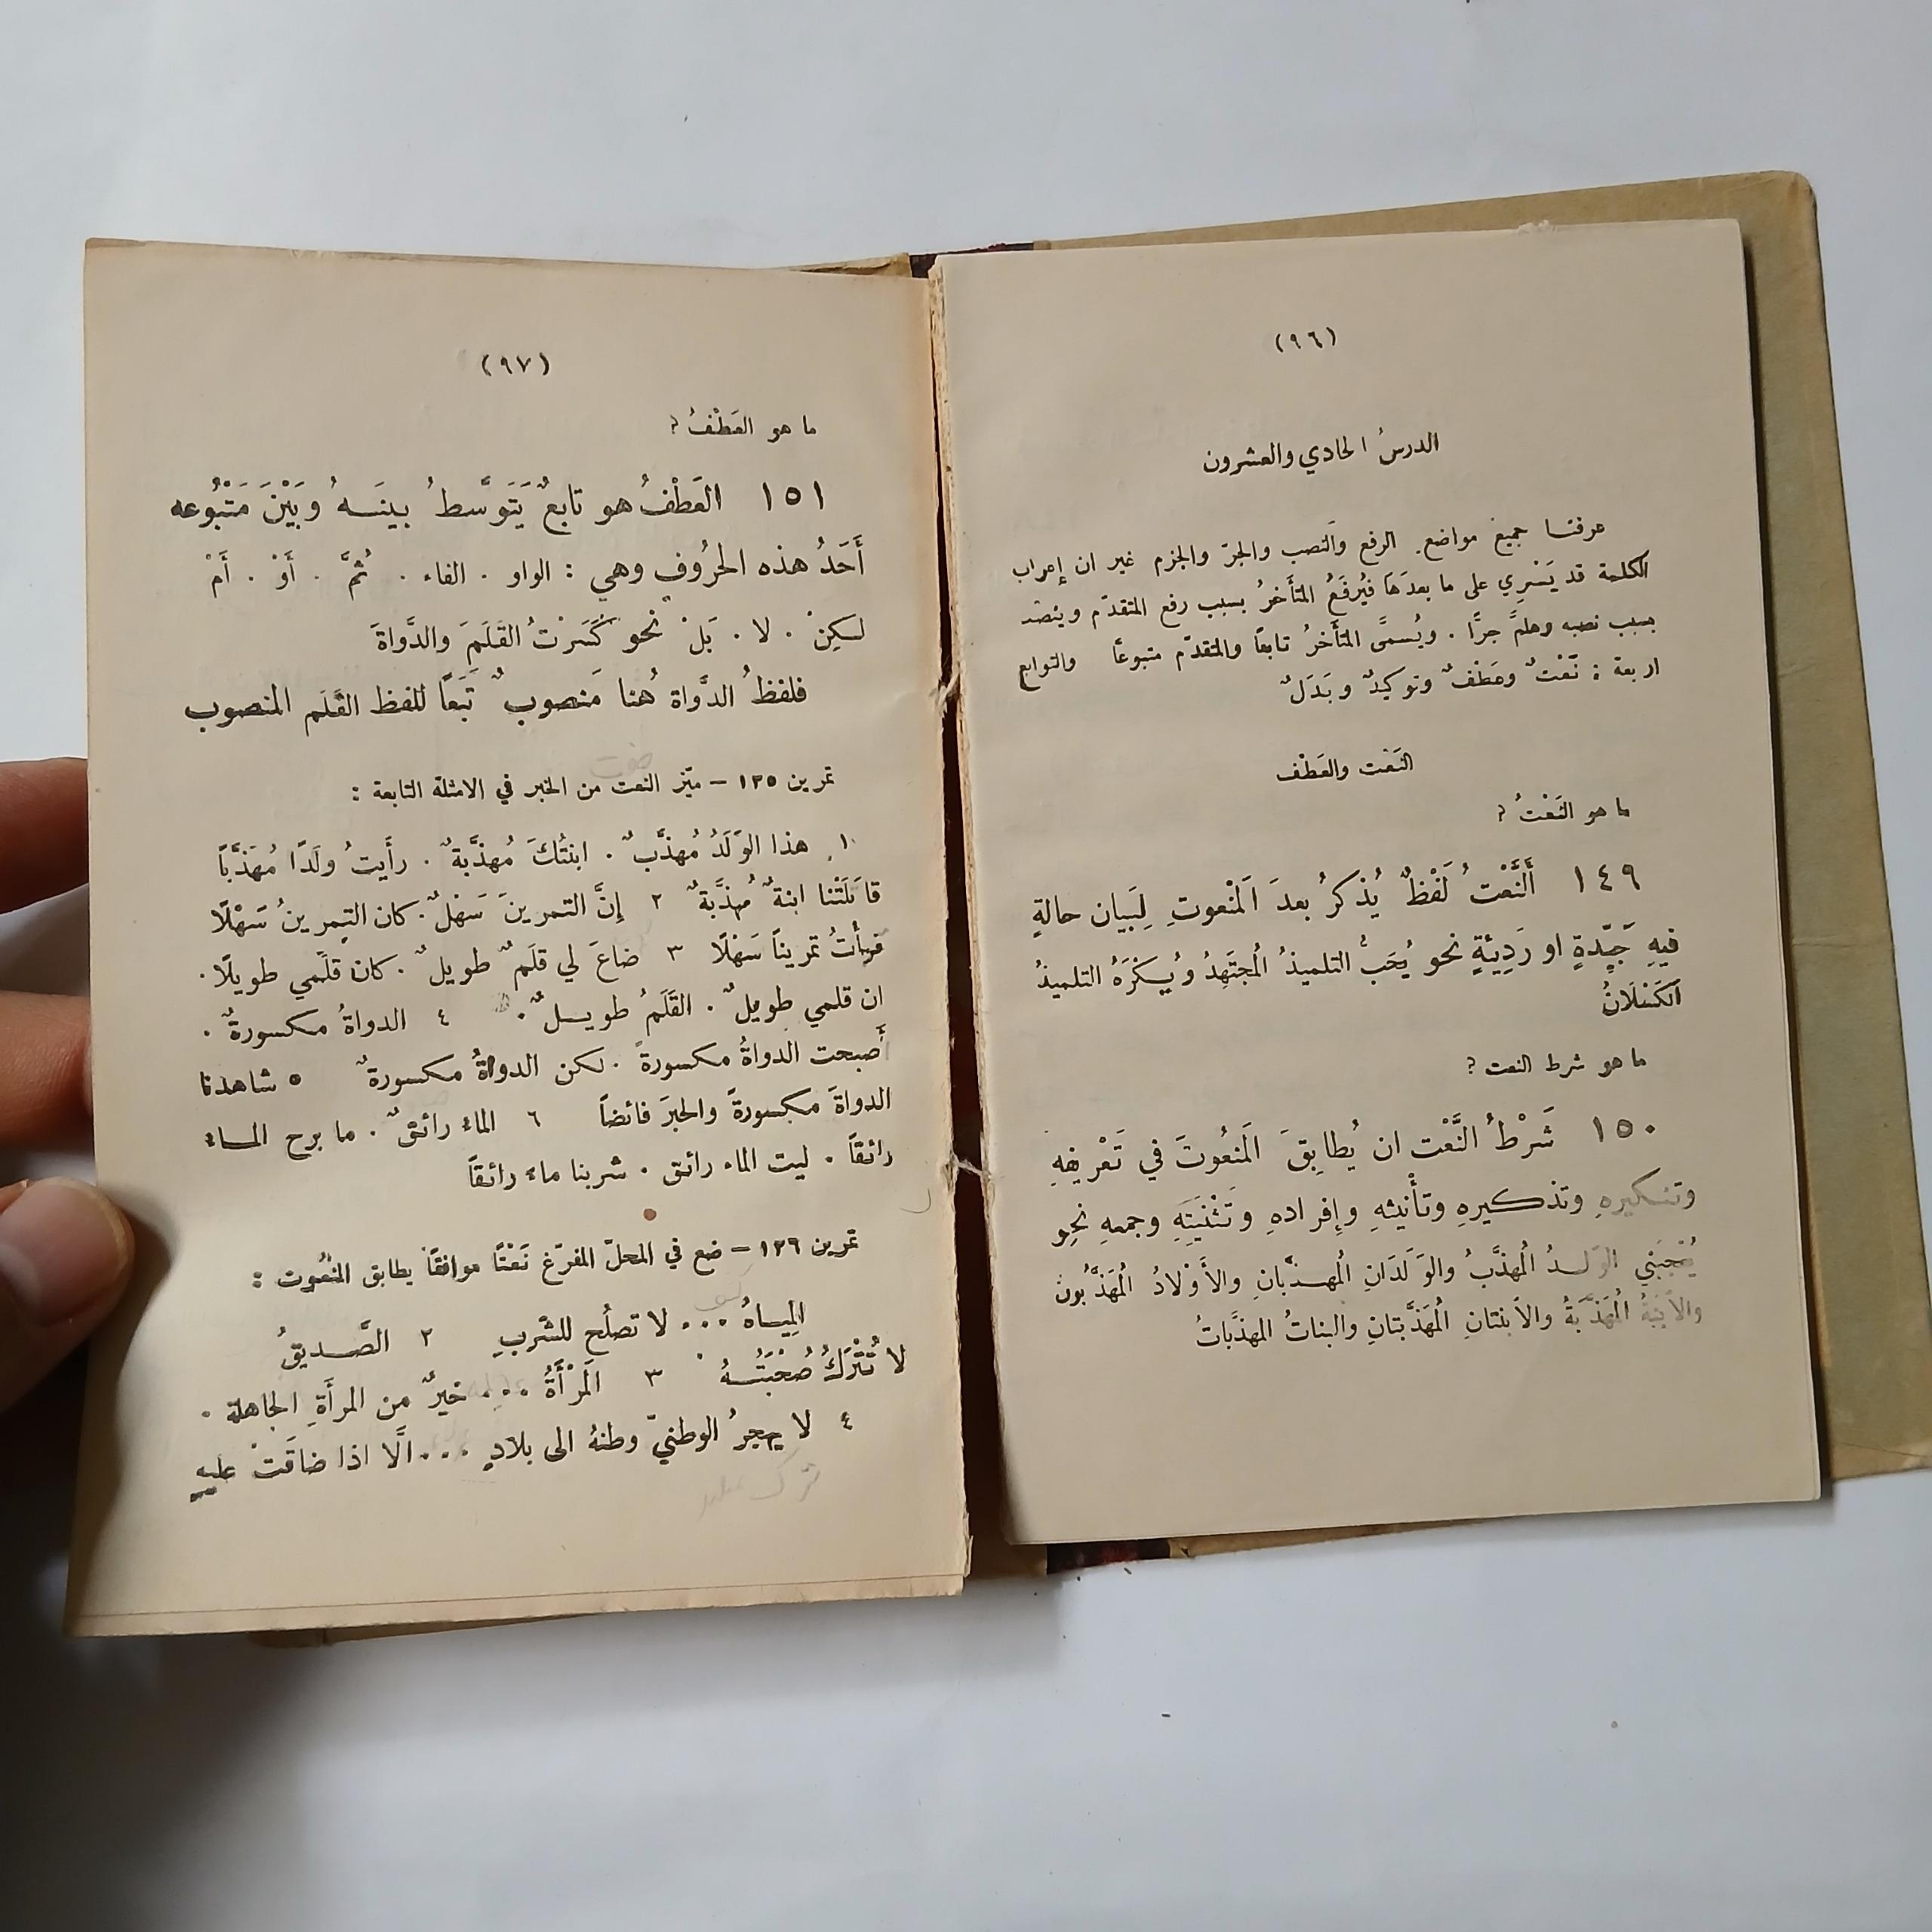 (٩٦)
الدرسُ الحادي والعشرون
عرفنا جميعَ مواضع الرفع والنصب والجرّ والجزم غير ان إعراب
الكلمة قد يَسْرِي على ما بعدَها فيُرفَعُ المتأَخرُ بسبب رفع المتقدّم وينصَب
بسبب نصبه وهلمَّ جرًّا . ويُسمَّى المتأَخرُ تابعًا والمتقدّم متبوعًا والتوابع
اربعة : نَعْتٌ وعَطْفٌ وتوكيدٌ وبَدَلٌ
النَعْت والعَطْف
ما هو النَعْتُ ؟
١٤٩ أَلنَّعْتُ لَفْظٌ يُذْكرُ بعدَ اَلمَنْعوتِ لِبَيان حالةٍ
فيهِ جَيِّدةٍ او رَدِيئةٍ نحو يُحَبُّ التلميذُ المُجتَهِدُ ويُكْرَهُ التلميذُ
اَلكَسْلَانُ
ما هو شرط النعت ؟
١٥٠ شَرْطُ النَّعْت ان يُطابِقَ اَلمَنعُوتَ في تَعْريفِهِ
وتنكيرهِ وتذكيرهِ وتأْنيثهِ وإِفرادهِ وتَثْنيَتِهِ وجمعهِ نحو
يُعْجِبُني الوَلدُ المُهذَّبُ والوَلَدَانِ المُهذَّبانِ والأَوْلادُ المُهَذَّبُونَ
والاَبنةُ المُهَذَّبَةُ والاَبنتانِ المُهَذَّبتانِ والبناتُ المهذَّباتُ
(٩٧)
ما هو العَطْفُ ؟
١٥١ العَطْفُ هو تابعٌ يَتَوَسَّطُ بينَـهُ وبَيْنَ مَتْبُوعه
أَحَدُ هذه الحرُوف وهي : الواو . الفاء . ثُمَّ . أَوْ . أَمْ
لكِنْ . لا . بَلْ نحو كَسَرْتُ القَلَمَ والدَّواةَ
فلفظُ الدَّواة هُنا مَنصوبٌ تَبَعاً للفظ القَلَم المنصوب
تمرين ١٢٥ – ميّز النعت من الخبر في الامثلة التابعة :
١ هذا الوَلَدُ مُهذَّبٌ . ابنتُكَ مُهذَّبةٌ . رأَيتُ ولَدًا مُهَذَّبًا
قابَلَتْنا ابنةٌ مُهذَّبَةٌ ٢ إِنَّ التمرينَ سَهْلٌ . كان التمرينُ سَهْلًا
قرأتُ تمريناً سَهْلًا ٣ ضاعَ لي قلَمٌ طويلٌ . كان قلَمي طويلًا .
ان قلمي طويلٌ . القَلَمُ طويـلٌ . ٤ الدواةُ مكسورةٌ .
أَصبحت الدواةُ مكسورةً . لكن الدواةُ مكسورةٌ ٥ شاهدنا
الدواةَ مكسورةً والحبرَ فائضاً ٦ الماءُ رائقٌ . ما برح المـاء
رائقاً . ليت الماء رائق . شربنا ماءً رائقاً
تمرين ١٢٦ – ضع في المحلّ المفرّغ نَعْتًا موافقًا يطابق المنعُوت :
المِيـاهُ . . . لا تصلُح للشّربِ ٢ الصَّـديقُ
لا تُتْرَكُ صُحْبَتُـهُ ٣ اَلمَرْأَةُ . . . خيرٌ من المرأَةِ الجاهلة .
٤ لا يهجرُ الوطنيّ وطنهُ الى بلادٍ . . . الَّا اذا ضاقَتْ عليهِ